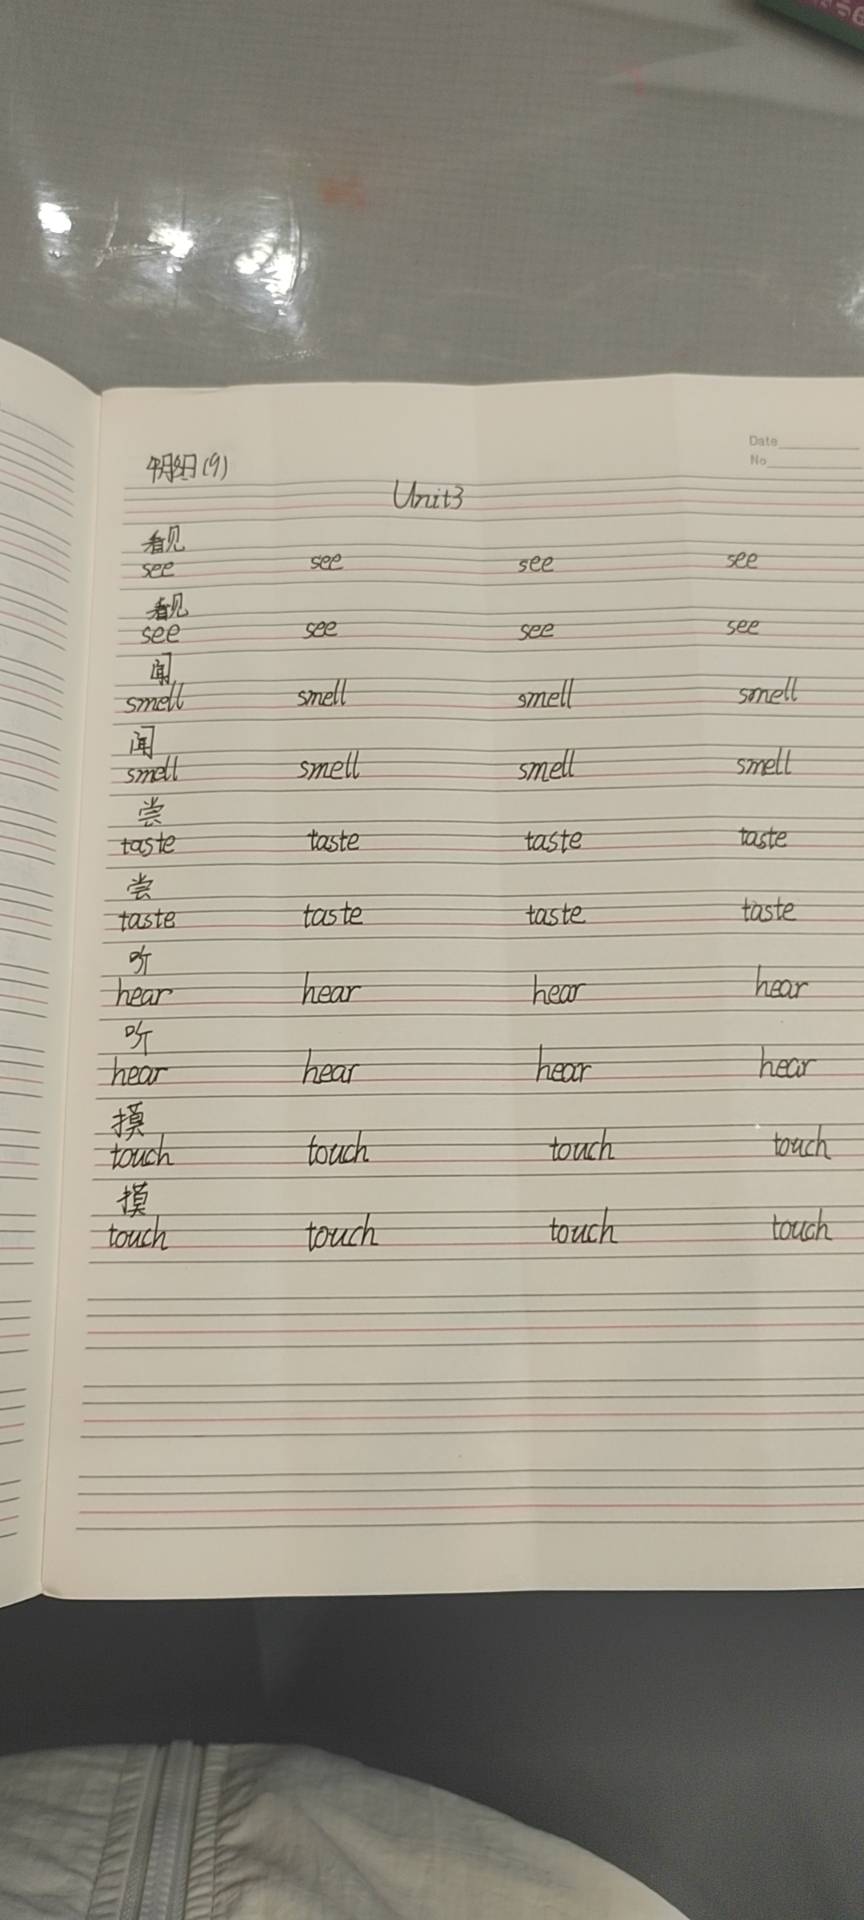 Date
No
(9)
Unit3
看见
see see see see
看见
see see see see
闻
smell smell smell smell
闻
smell smell smell smell
尝
taste taste taste taste
尝
taste taste taste taste
听
hear hear hear hear
听
hear hear hear hear
摸
touch touch touch touch
摸
touch touch touch touch